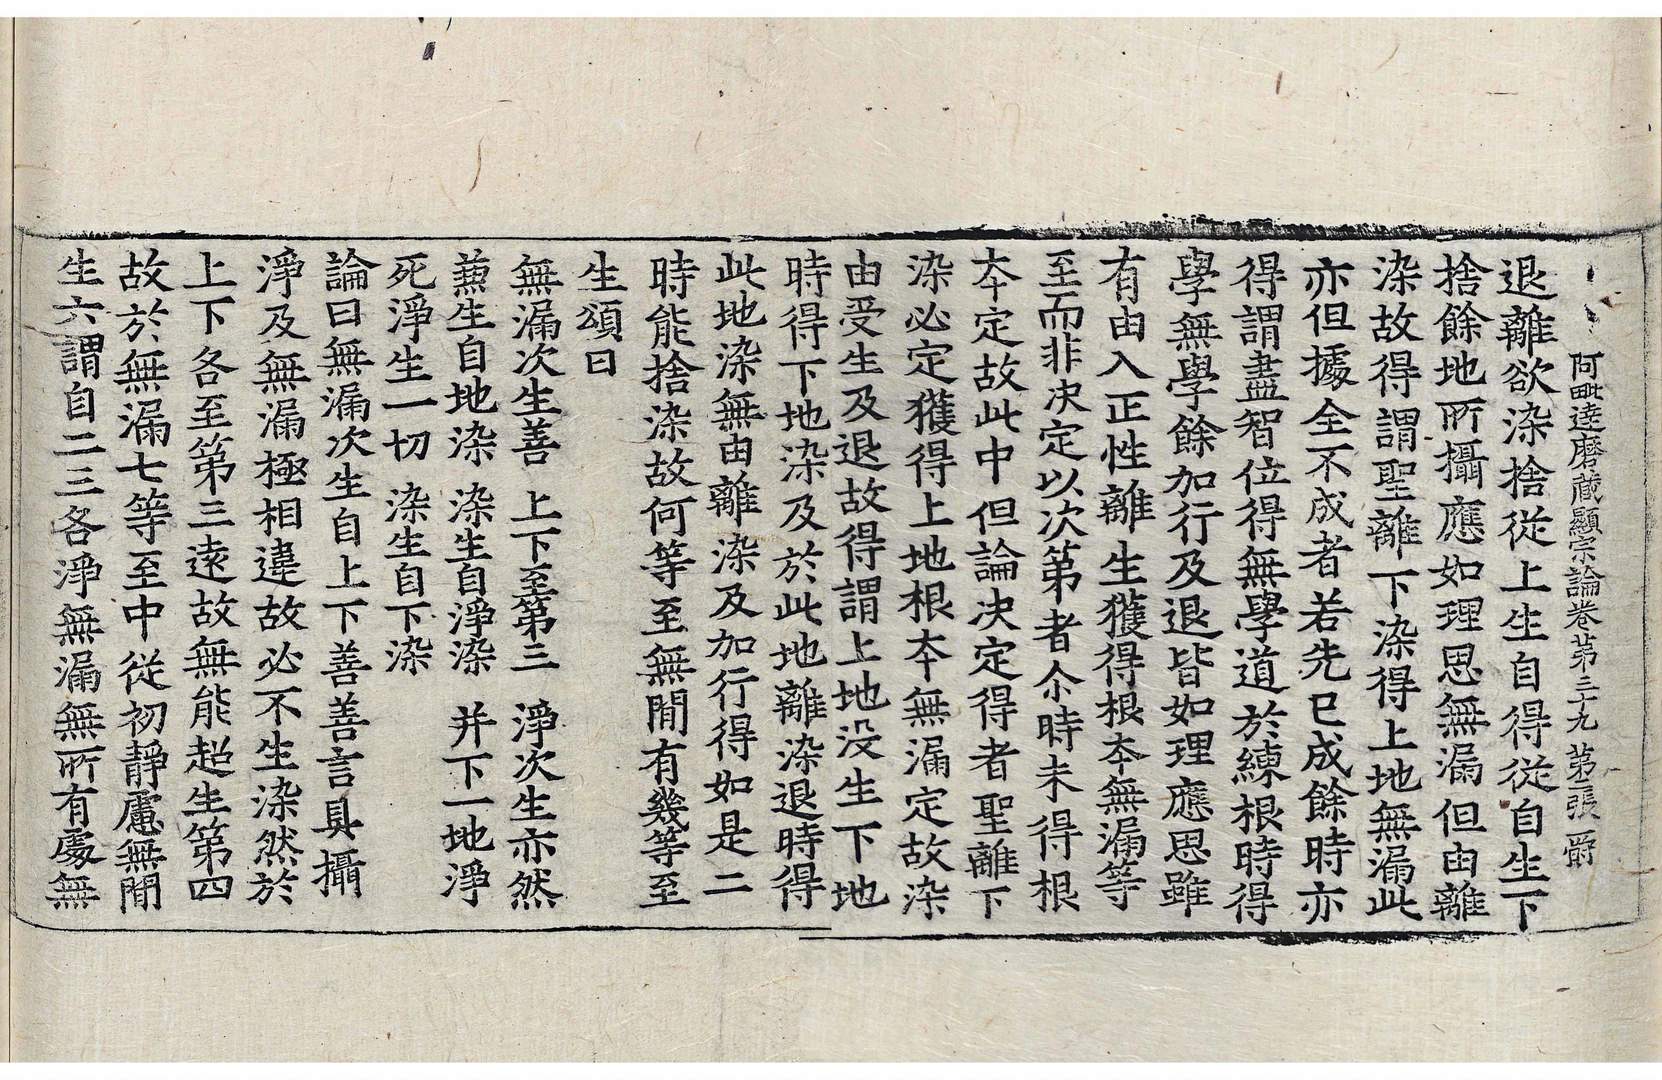 阿毗達磨藏顯宗論卷第三十九 第二張 爵
退離欲染捨從上生自得從自生下
捨餘地所攝應如理思無漏但由離
染故得謂聖離下染得上地無漏此
亦但據全不成者若先已成餘時亦
得謂盡智位得無學道於練根時得
學無學餘加行及退皆如理應思雖
有由入正性離生獲得根夲無漏等
至而非决定以次第者尒時未得根
夲定故此中但論决定得者聖離下
染必定獲得上地根夲無漏定故染
由受生及退故得謂上地没生下地
時得下地染及於此地離染退時得
此地染無由離染及加行得如是二
時能捨染故何等至無間有幾等至
生頌曰
無漏次生善 上下至第三 淨次生亦然
蕪生自地染 染生自淨染 并下一地淨
死淨生一切 染生自下染
論曰無漏次生自上下善善言具攝
淨及無漏極相違故必不生染然於
上下各至第三遠故無能超生第四
故於無漏七等至中從初靜慮無間
生六謂自二三各淨無漏無所有處無